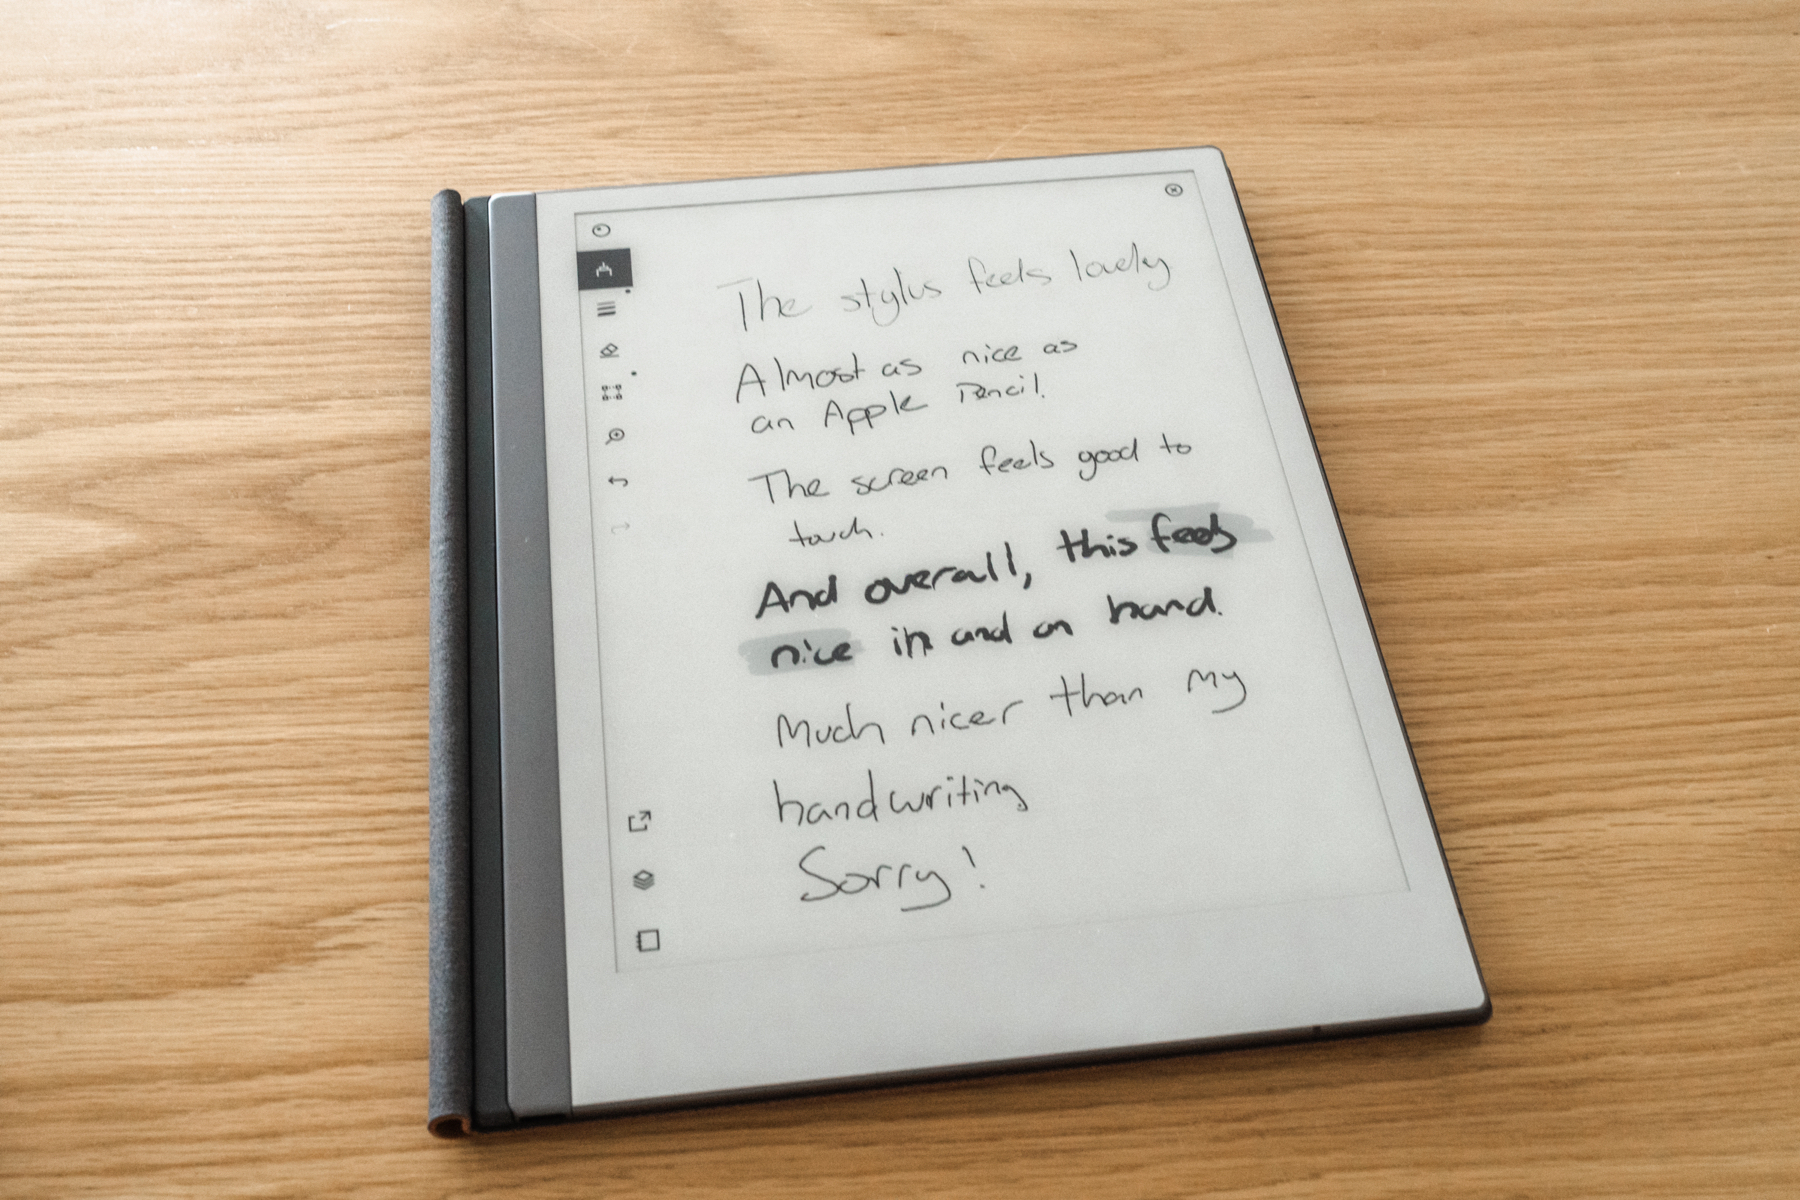 The stylus feels lovely
Almost as nice as
an Apple Pencil.
The screen feels good to
touch.
And overall, this feels
nice in and on hand.
Much nicer than my
handwriting
Sorry!